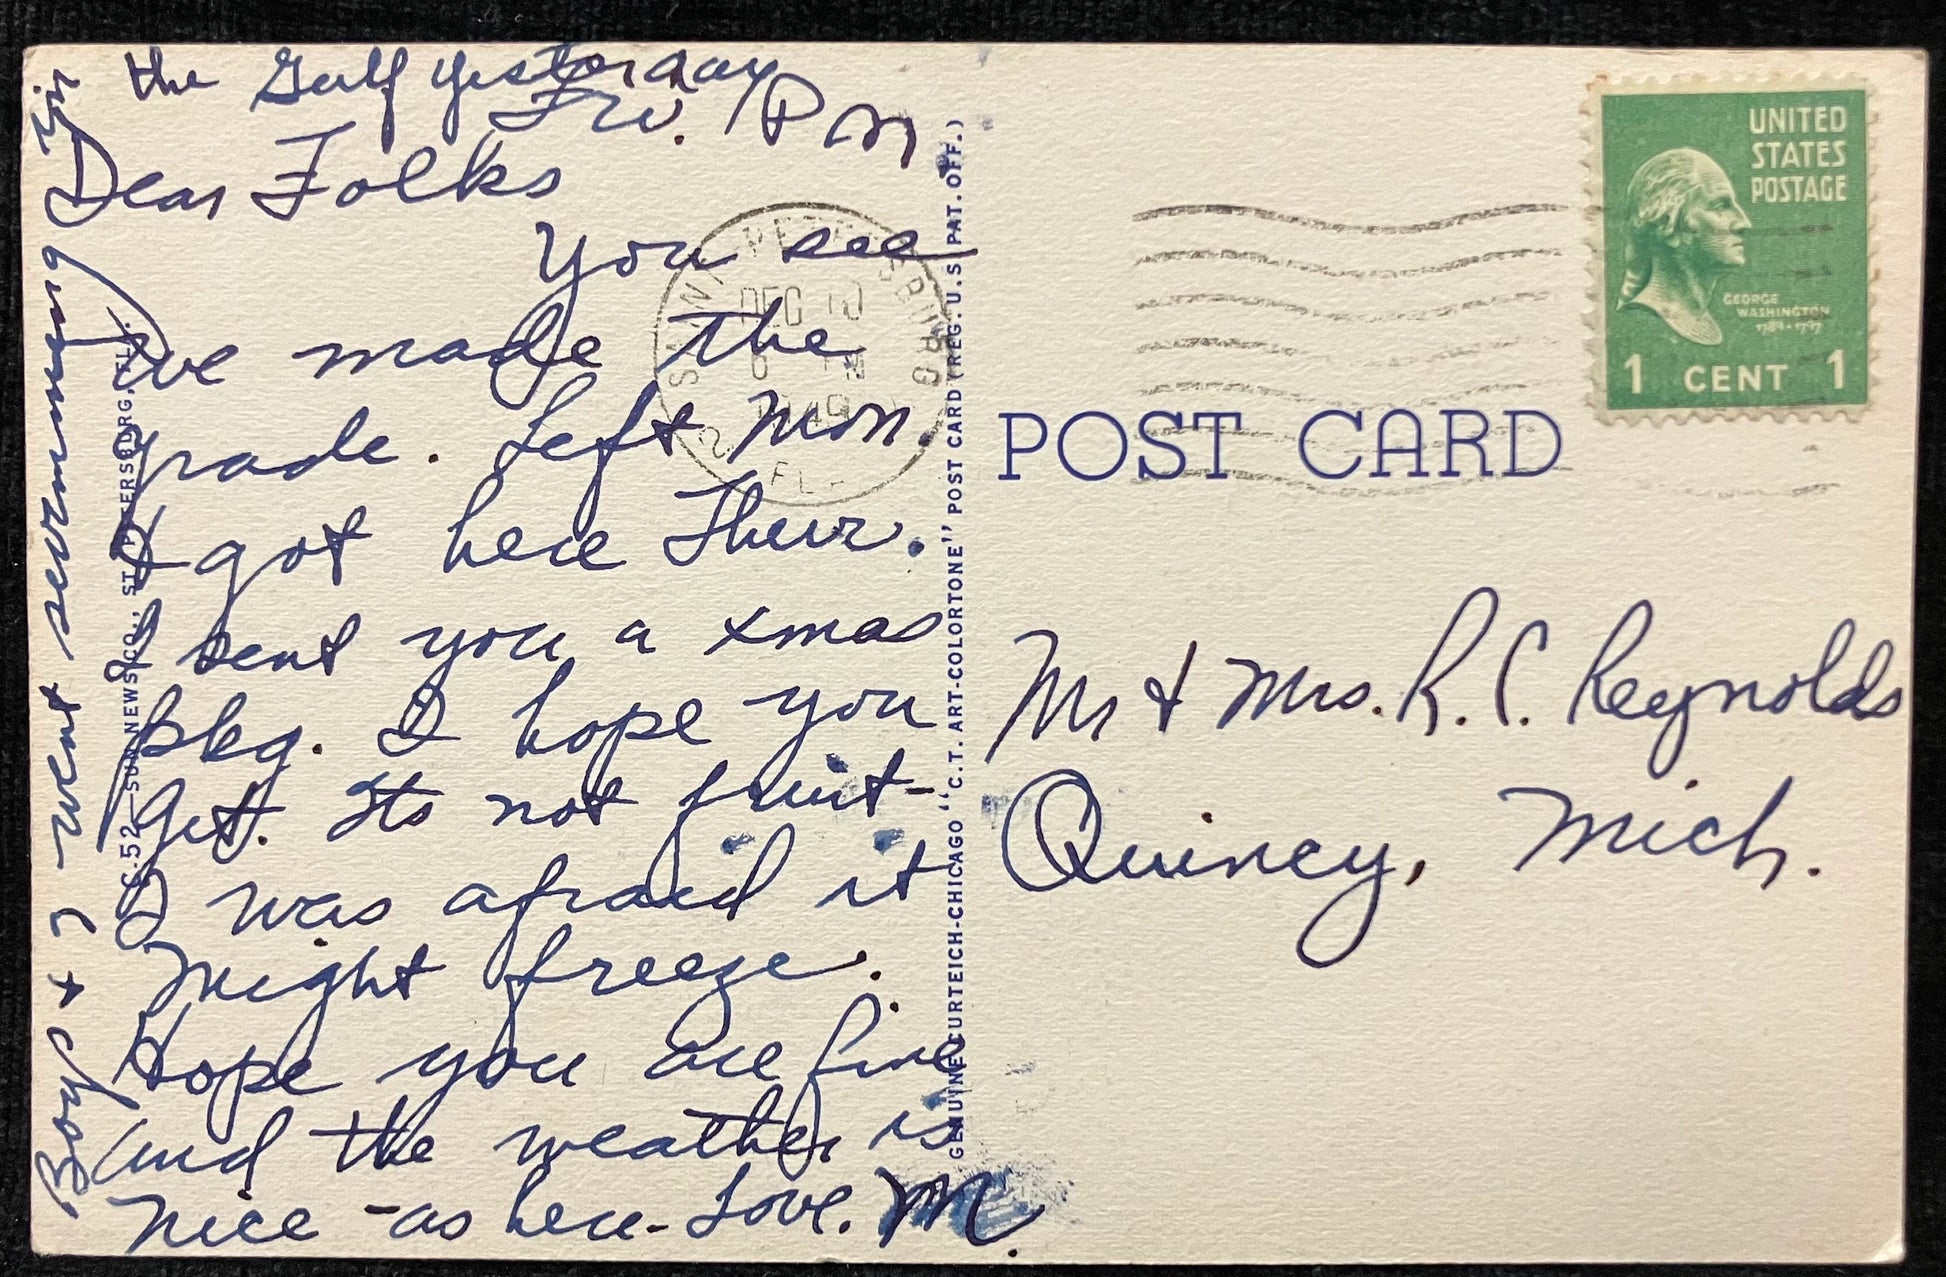 Fri. P M
Dear Folks
You see
we made the
grade. Left Mon.
& got here Thur.
I sent you a xmas
Pkg. I hope you
get. Its not fruit-
I was afraid it
might freeze.
Hope you are fine
and the weather is
nice - as here - Love. M.
Boys & I went swimming in
the Gulf yesterday
C-52—SUN NEWS CO., ST. PETERSBURG, FL.
SAINT PETERSBURG
DEC 10
1949
2
FLA
GENUINE CURTEICH-CHICAGO "C.T. ART-COLORTONE" POST CARD (REG. U.S. PAT. OFF.)
UNITED
STATES
POSTAGE
GEORGE
WASHINGTON
1789-1797
1 CENT 1
POST CARD
Mr & Mrs. R. C. Reynolds
Quincy, Mich.